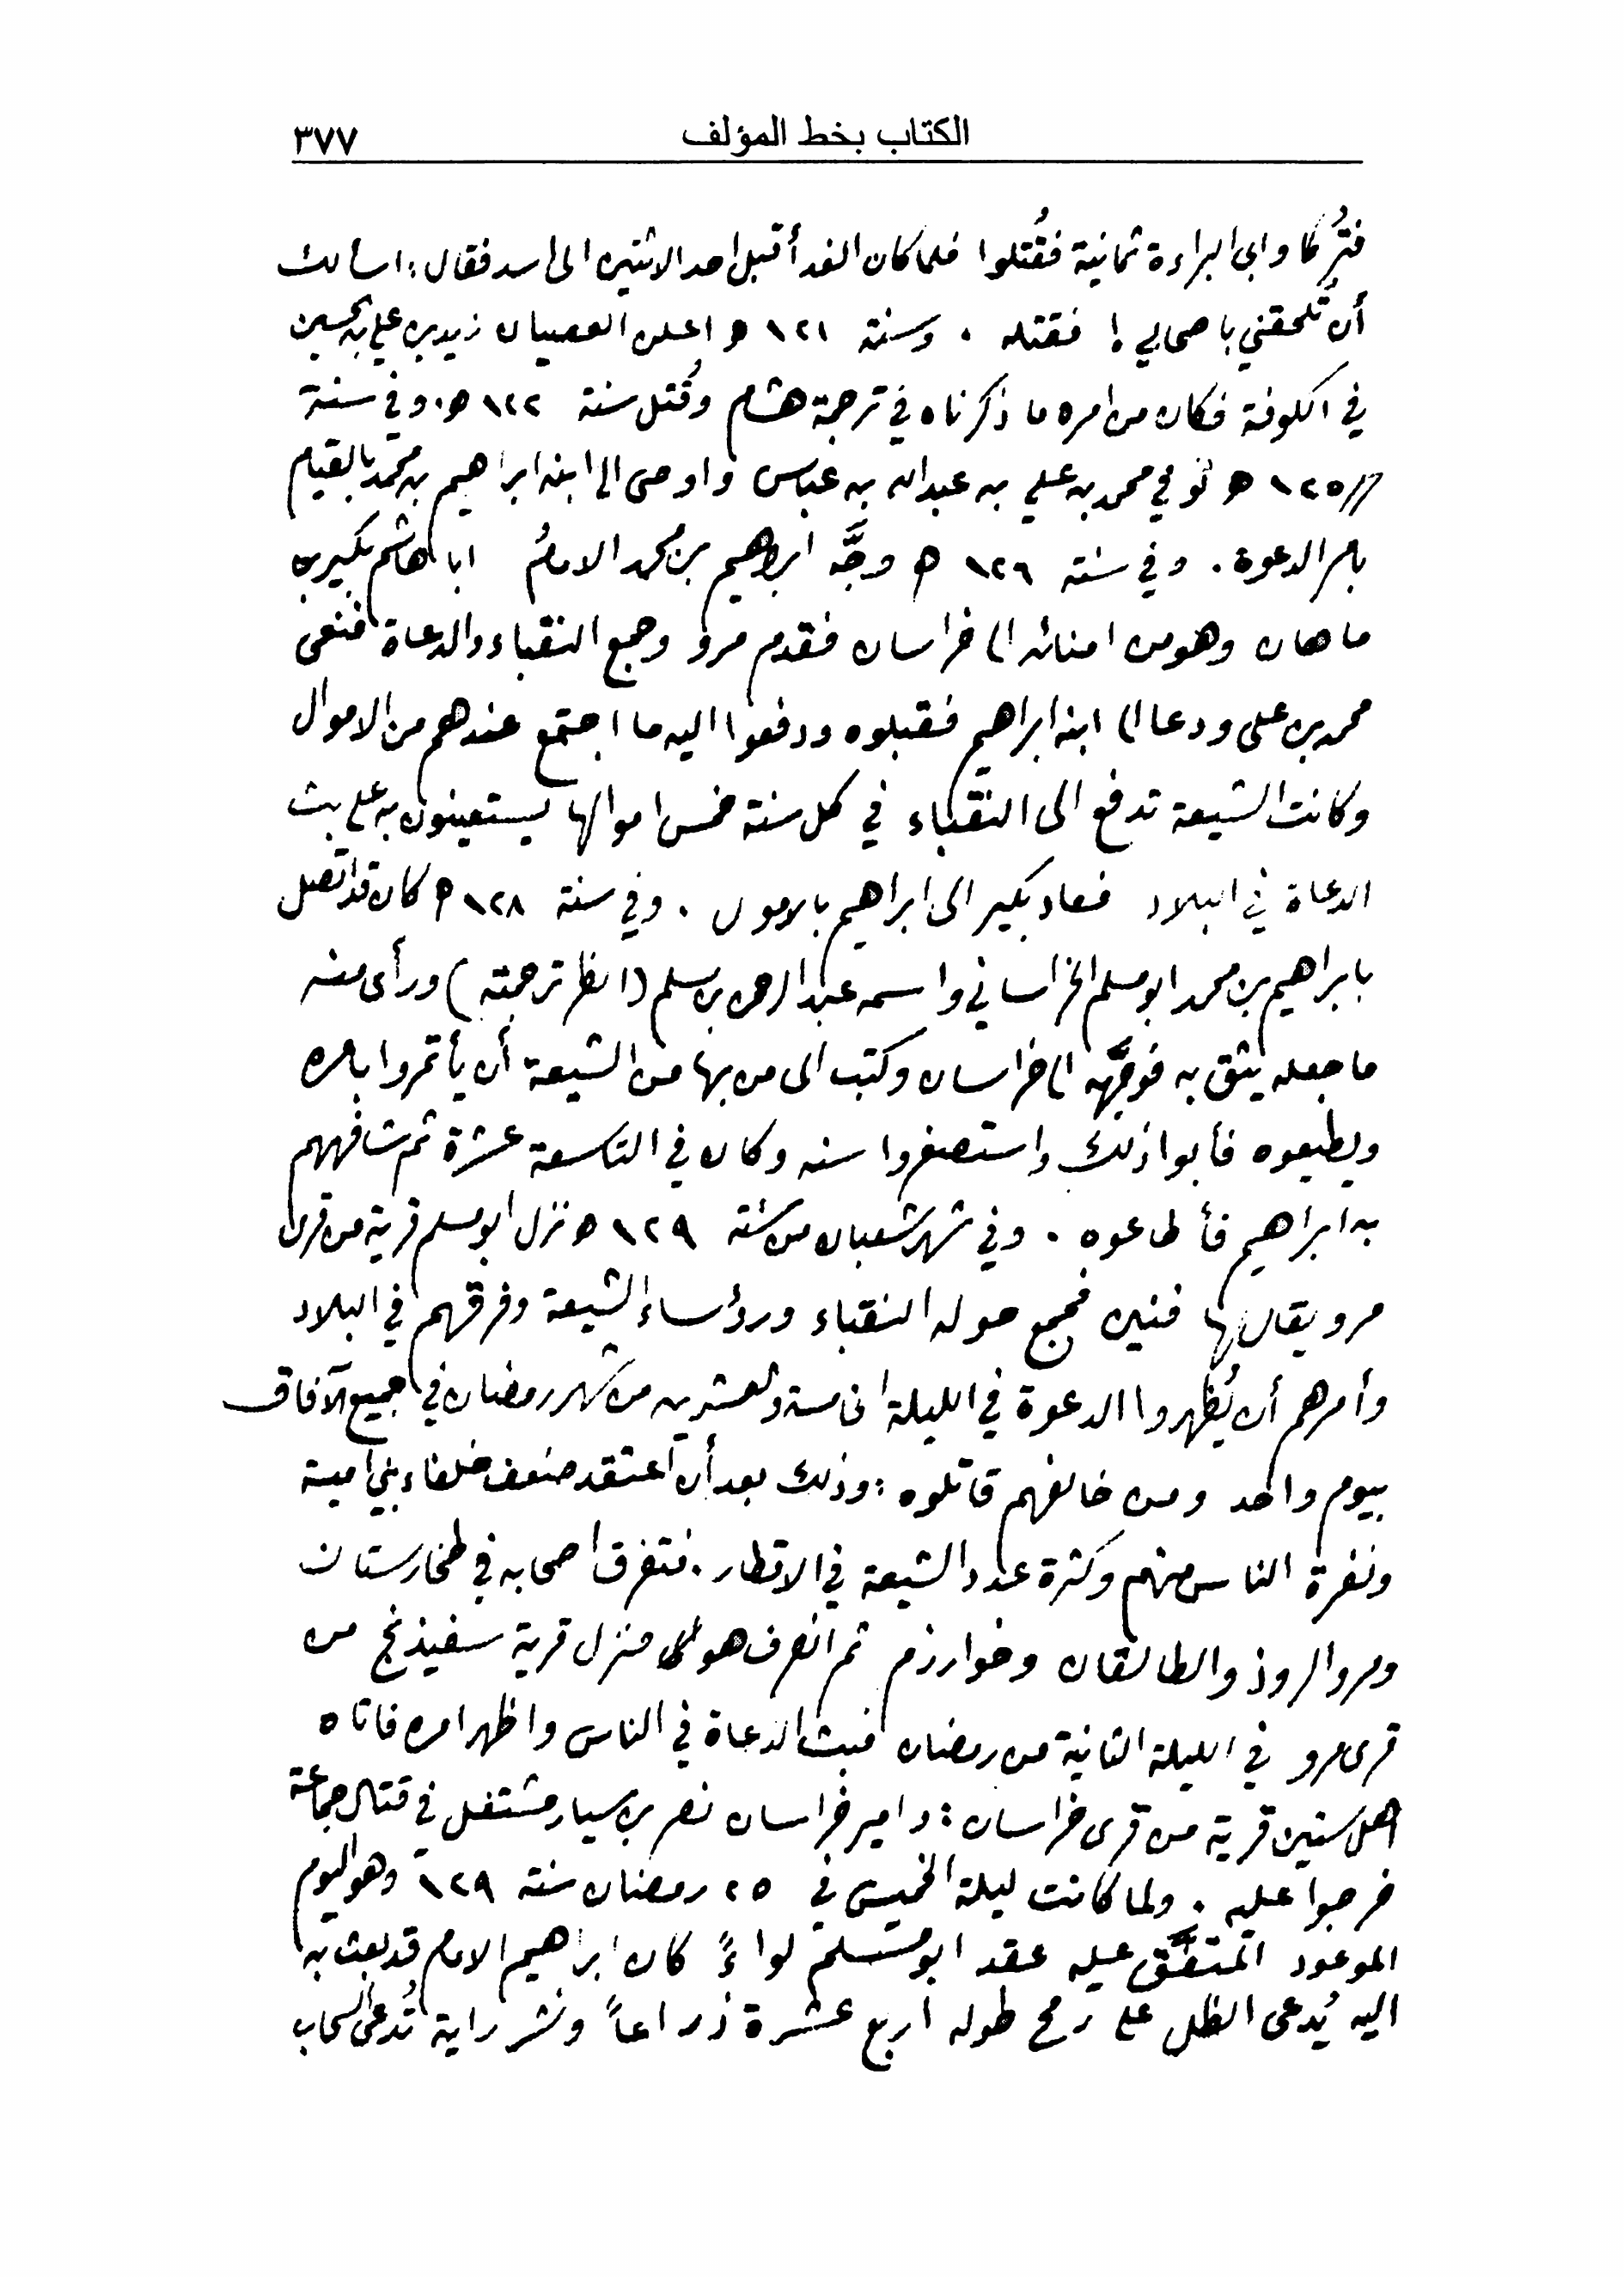 الكتاب بخط المؤلف ٣٧٧
فتُركا وابى البراءة ثمانية فقُتلوا فلما كان الغد أقبل احد الاثنين الى اسد فقال: اسألك
أن تلحقني باصحابي! فقتله. وسنة ١٢١ هـ اعلن العصيان زيد بن علي بن الحسين
في الكوفة فكان من امره ما ذكرناه في ترجمة هشام وقُتل سنة ١٢٢ هـ. وفي سنة
١٢٥ هـ توفي محمد بن علي بن عبدالله بن عباس واوصى الى ابنه ابراهيم بن محمد بالقيام
بامر الدعوة. وفي سنة ١٢٦ هـ وجَّه ابراهيم بن محمد الامامُ ابا هاشم بكير بن
ماهان وهو من امنائه الى خراسان فقدم مرو وجمع النقباء والدعاة فنعى
محمد بن علي ودعا الى ابنه ابراهيم فقبلوه ودفعوا اليه ما اجتمع عندهم من الاموال
وكانت الشيعة تدفع الى النقباء في كل سنة خمس اموالها ليستعينون به على بث
الدعاة في البلاد فعاد بكير الى ابراهيم بالاموال. وفي سنة ١٢٨ هـ كان قد اتصل
بابراهيم بن محمد ابو مسلم الخراساني واسمه عبد الرحمن بن مسلم (انظر ترجمته) ورأى منه
ما جعله يثق به فوجَّهه الى خراسان وكتب الى من بها من الشيعة أن يأتمروا بامره
ويطيعوه فأبوا ذلك واستصغروا سنه وكان في التاسعة عشرة ثم شافههم
به ابراهيم فأطاعوه. وفي شهر شعبان من سنة ١٢٩ هـ نزل ابو مسلم قرية من قرى
مرو يقال لها فنين فجمع حوله النقباء ورؤساء الشيعة وفرقهم في البلاد
وأمرهم أن يُظهروا الدعوة في الليلة الخامسة والعشرين من شهر رمضان في جميع الآفاق
بيوم واحد ومن خالفهم قاتلوه؛ وذلك بعد أن اعتقد ضعف خلفاء بني امية
ونفرة الناس منهم وكثرة عدد الشيعة في الاقطار. فتفرق اصحابه في طخارستان
ومرو الروذ والطالقان وخوارزم ثم انصرف هو فنزل قرية سفيذنج من
قرى مرو في الليلة الثانية من رمضان فبث الدعاة في الناس واظهر امره فاتاه
اهل ستين قرية من قرى خراسان؛ وامير خراسان نصر بن سيار مشتغل في قتال جماعة
خرجوا عليه. ولما كانت ليلة الخميس في ٢٥ رمضان سنة ١٢٩ وهو اليوم
الموعود المتفَّق عليه عقد ابو مسلم لواءً كان ابراهيم الامام قد بعث به
اليه يُدعى الظل على رمح طوله اربع عشرة ذراعاً ونشر راية تُدعى السحاب